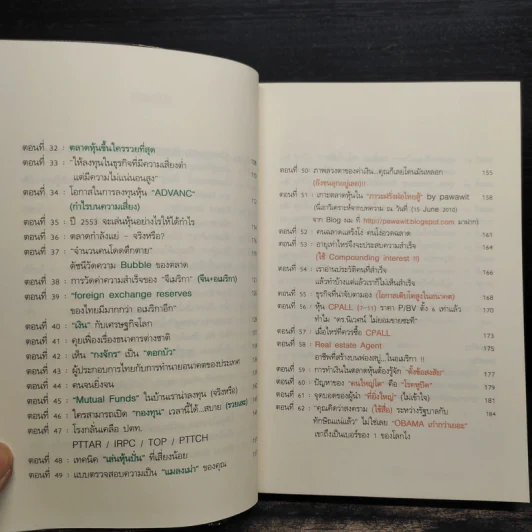 ตอนที่ 32 : ตลาดหุ้นขึ้นใครรวยที่สุด
ตอนที่ 33 : "ให้ลงทุนในธุรกิจที่มีความเสี่ยงต่ำ
แต่มีความไม่แน่นอนสูง"
ตอนที่ 34 : โอกาสในการลงทุนหุ้น "ADVANC"
(กำไรบนความเสี่ยง)
ตอนที่ 35 : ปี 2553 จะเล่นหุ้นอย่างไรให้ได้กำไร
ตอนที่ 36 : ตลาดกำลังแย่ - จริงหรือ?
ตอนที่ 37 : "จำนวนคนโดดตึกตาย"
ดัชนีวัดความ Bubble ของตลาด
ตอนที่ 38 : การวัดค่าความสำเร็จของ "จีเมริกา" (จีน+อเมริกา)
ตอนที่ 39 : "foreign exchange reserves
ของไทยมีมากกว่า อเมริกาอีก"
ตอนที่ 40 : "เงิน" กับเศรษฐกิจโลก
ตอนที่ 41 : คุยเฟื่องเรื่องธนาคารต่างชาติ
ตอนที่ 42 : เห็น "กงจักร" เป็น "ดอกบัว"
ตอนที่ 43 : ผู้ประกอบการไทยกับการทำนายอนาคตของประเทศ
ตอนที่ 44 : คนจนยิ่งจน
ตอนที่ 45 : "Mutual Funds" ในบ้านเราน่าลงทุน (จริงหรือ)
ตอนที่ 46 : ใครสามารถเปิด "กองทุน" เวลานี้ได้...สบาย (รวยเละ)
ตอนที่ 47 : โรงกลั่นเครือ ปตท.
PTTAR / IRPC / TOP / PTTCH
ตอนที่ 48 : เทคนิค "เล่นหุ้นปั่น" ที่เสี่ยงน้อย
ตอนที่ 49 : แบบตรวจสอบความเป็น "แมลงเม่า" ของคุณ
ตอนที่ 50 : ภาพลวงตาของค่าเงิน...คุณก็เลยโดนมันหลอก 155
(ยิ่งขนลุกอยู่เลย)!!
ตอนที่ 51 : เกาะตลาดหุ้นใน by pawawit 160
(15 June 2010)
จาก Blog ผม ที่ http://pawawit.blogspot.com
ตอนที่ 52 : 163
ตอนที่ 53 : อายุเท่าไหร่จึงจะประสบความสำเร็จ 165
(ใช้ Compounding interest !!)
ตอนที่ 54 : เราอ่านประวัติคนที่สำเร็จ
แล้วทำบ้างแต่แล้วเราก็ไม่เห็นสำเร็จ
ตอนที่ 55 : ธุรกิจที่น่าจับตามอง (โอกาสเติบโตสูงในอนาคต) 168
ตอนที่ 56 : หุ้น CPALL (7-11) ราคา P/BV ตั้ง 6 เท่าแล้ว 170
ทำไม "ดร.นิเวศน์ ไม่ยอมขายซะที"
ตอนที่ 57 : เมื่อไหร่ที่ควรซื้อ CPALL 173
ตอนที่ 58 : Real estate Agent 175
อาชีพที่สร้างบนฟองสบู่...ในอเมริกา !!
ตอนที่ 59 : การทำเงินในตลาดหุ้นต้องรู้จัก "ตั้งข้อสงสัย" 177
ตอนที่ 60 : ปัญหาของ "คนใหญ่โต" คือ "โรคหูปิด" 179
ตอนที่ 61 : จุดบอดของผู้นำ "ที่ยิ่งใหญ่" (ไม่เข้าใจ) 181
ตอนที่ 62 : "คุณคิดว่าสงคราม (ใช้สื่อ) ระหว่างรัฐบาลกับ 184
ทักษิณแน่แล้ว" ไม่ใช่เลย "OBAMA เก๋ากว่าเยอะ"
เขาถึงเป็นเบอร์ของ 1 ของโลกไง